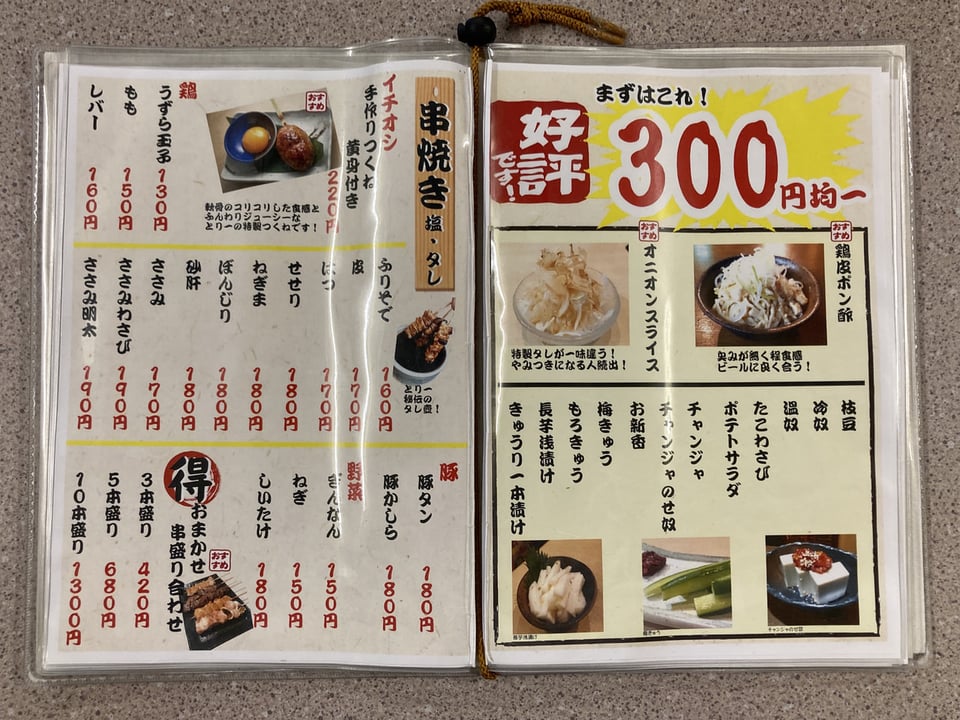 まずはこれ！
好評
です！
300円均一
おすすめ
鶏皮ポン酢
臭みが無く程食感
ビールに良く合う！
おすすめ
オニオンスライス
特製タレが一味違う！
やみつきになる人続出！
枝豆
冷奴
温奴
たこわさび
ポテトサラダ
チャンジャ
チャンジャのせ奴
お新香
梅きゅう
もろきゅう
長芋浅漬け
きゅうり一本漬け
長芋浅漬け
梅きゅう
チャンジャのせ奴
串焼き 塩・タレ
イチオシ
手作りつくね
黄身付き
220円
おすすめ
軟骨のコリコリした食感と
ふんわりジューシーな
とりーの特製つくねです！
鶏
うずら玉子 130円
もも 150円
レバー 160円
とりー
秘伝の
タレ壺！
ふりそで 160円
皮 170円
はつ 170円
せせり 180円
ねぎま 180円
ぼんじり 180円
砂肝 180円
ささみ 170円
ささみわさび 190円
ささみ明太 190円
豚
豚タン 180円
豚かしら 180円
野菜
ぎんなん 150円
ねぎ 150円
しいたけ 180円
得
おまかせ
串盛り合わせ
おすすめ
3本盛り 420円
5本盛り 680円
10本盛り 1300円